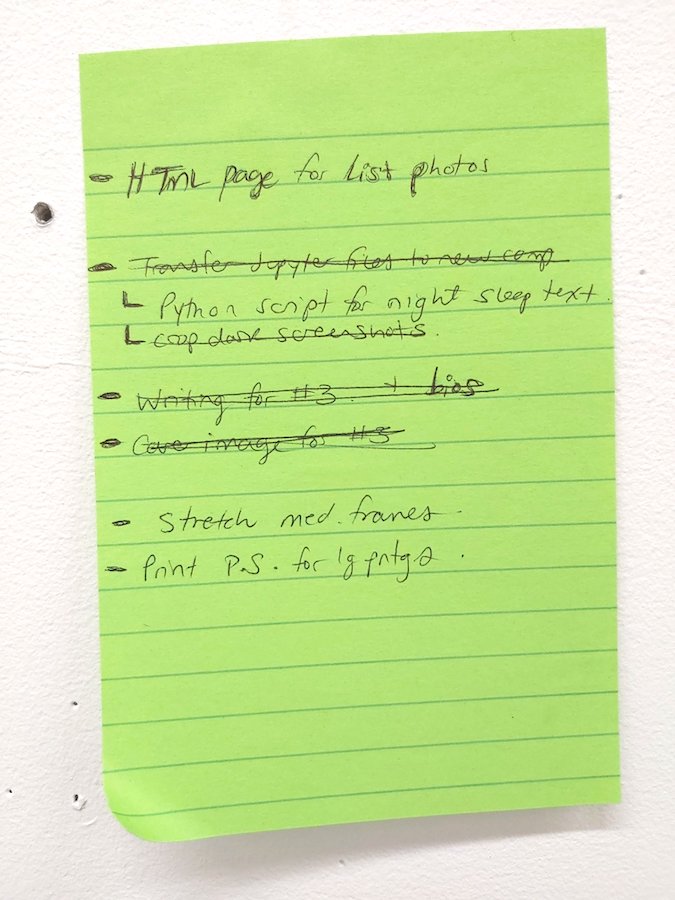 - HTML page for list photos
- Transfer Jupyter files to new comp
Python script for night sleep text.
crop dark screenshots.
- Writing for #3. + bios
- Cave image for #3
- Stretch med. frames.
- Print P.S. for lg pntgs.